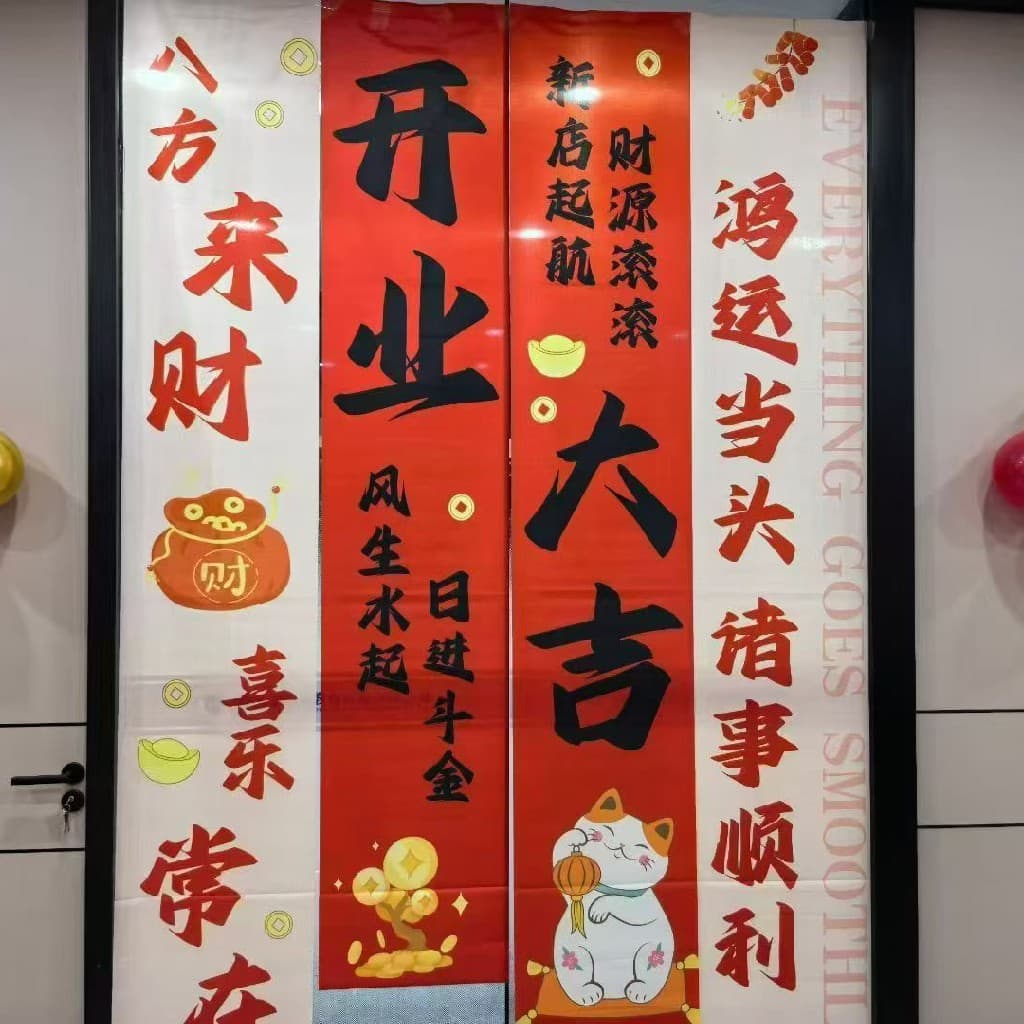 八方
来财
财
喜乐
常在
开业
风生水起
日进斗金
新店起航
财源滚滚
大吉
鸿运当头
诸事顺利
EVERYTHING GOES SMOOTHL